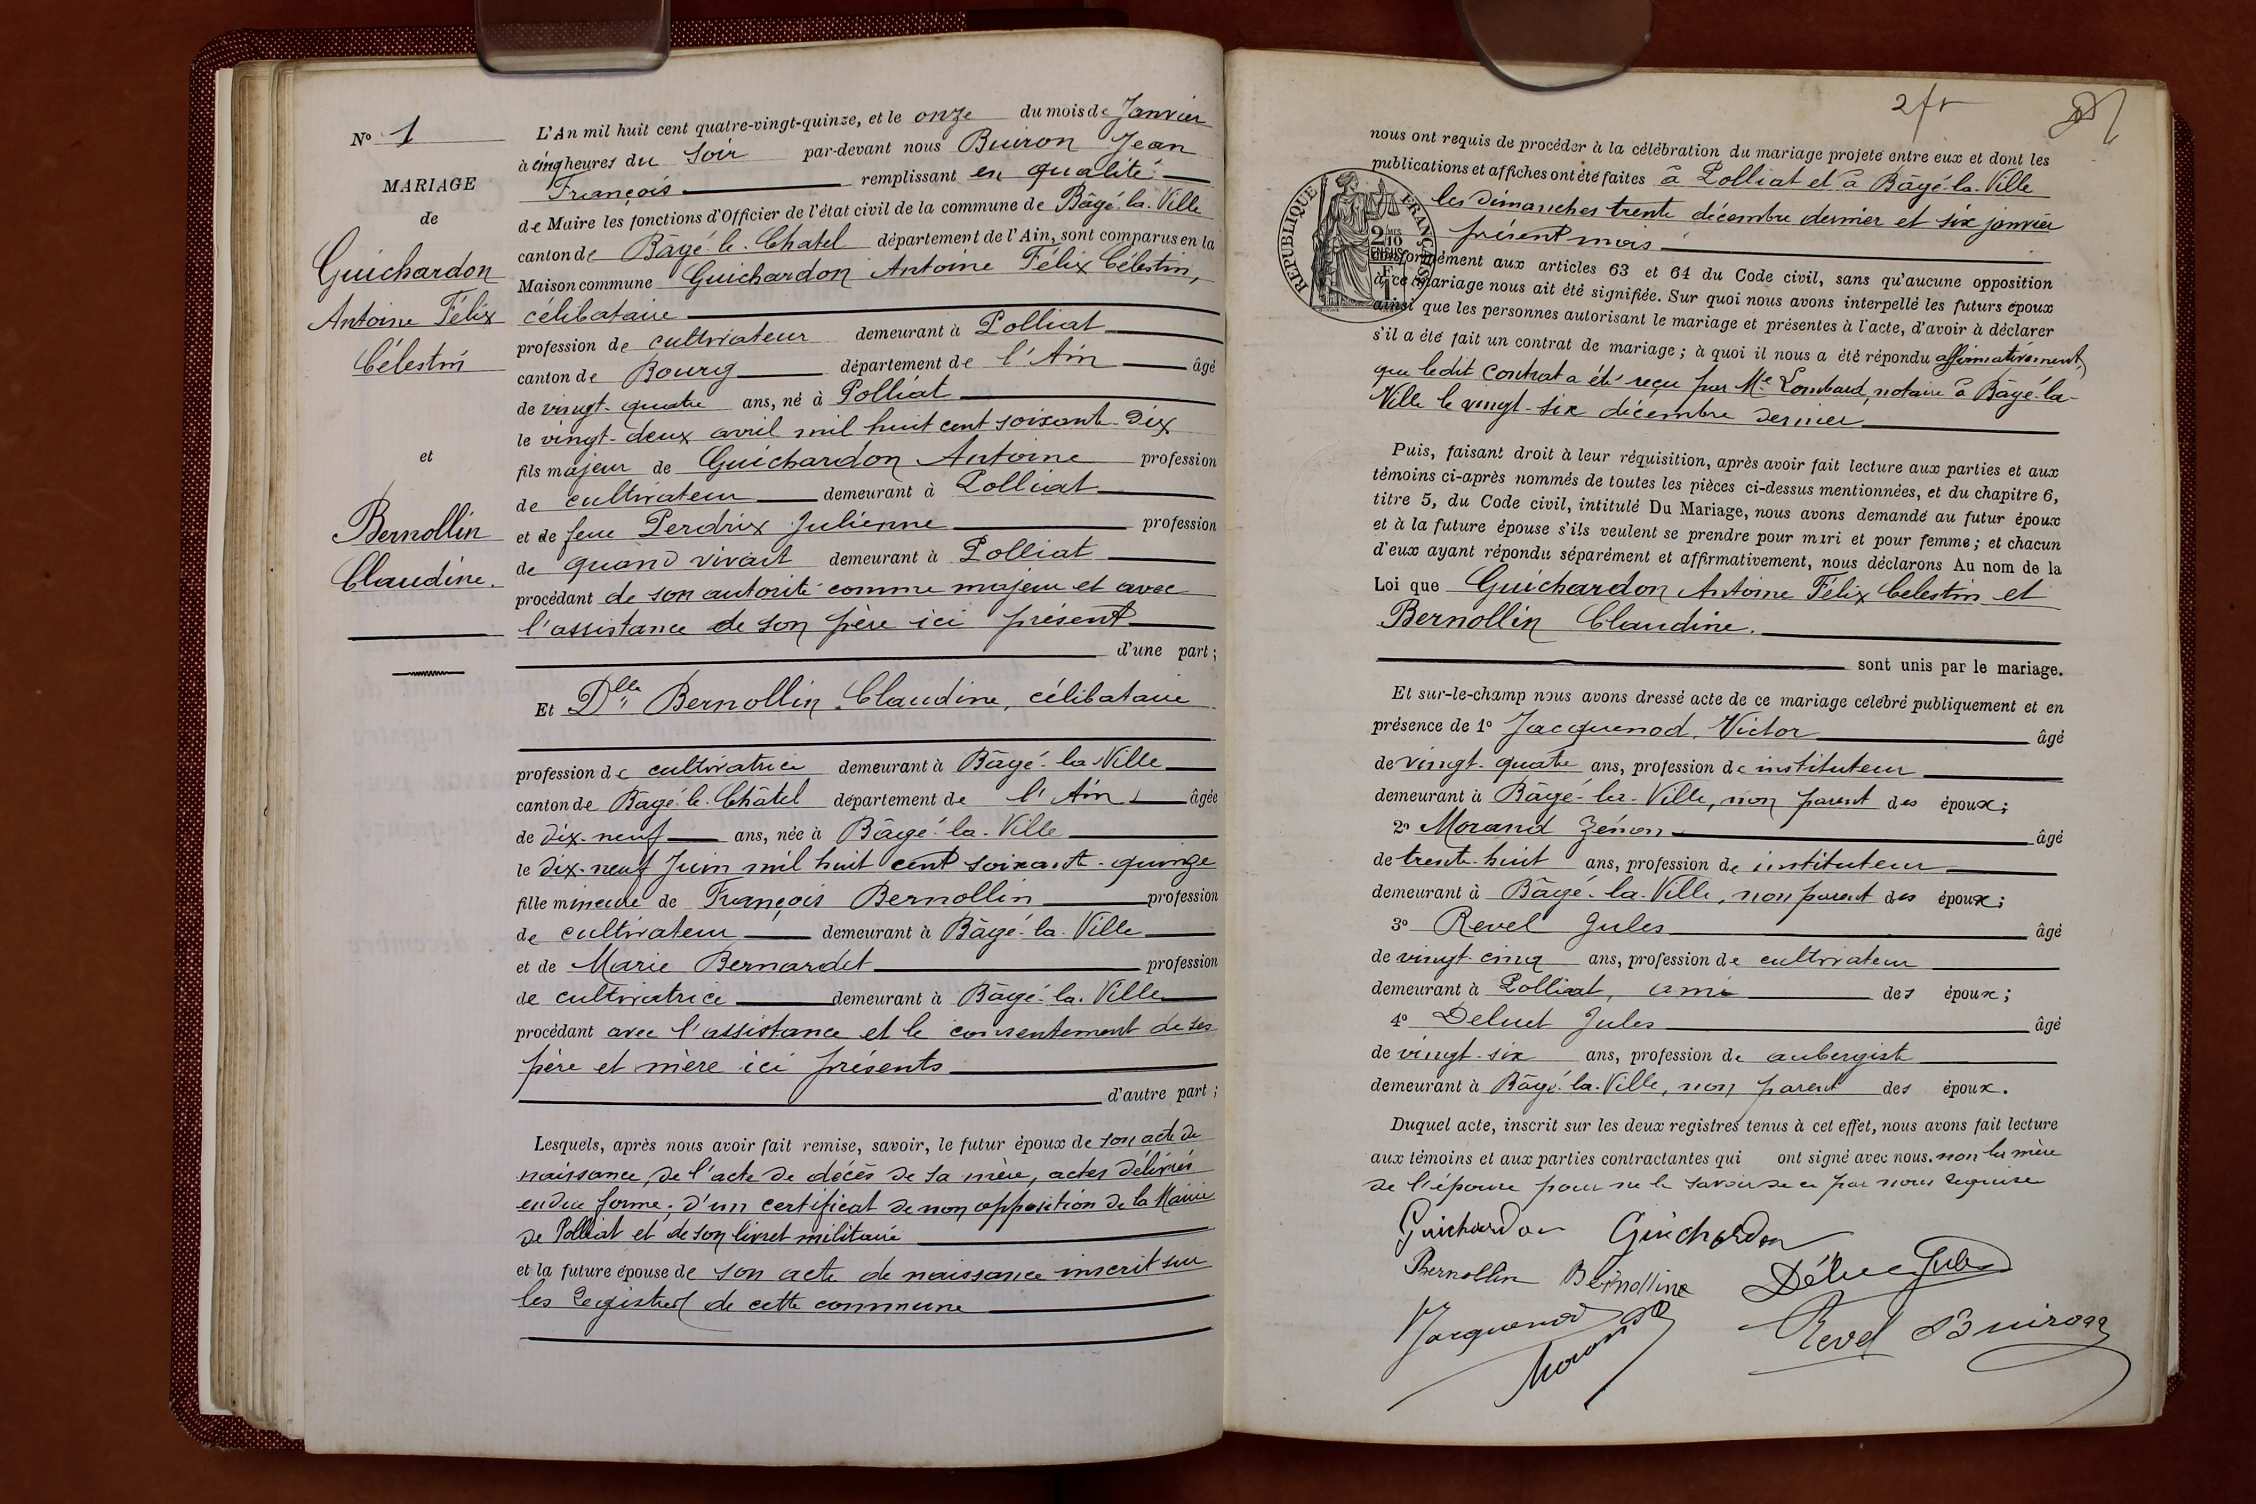 N° 1
MARIAGE
de
Guichardon
Antoine Félix
Célestin
et
Bernollin
Claudine.
L'An mil huit cent quatre-vingt-quinze, et le onze du mois de Janvier
à cinq heures du soir par-devant nous Buiron Jean
François remplissant en qualité
de Maire les fonctions d'Officier de l'état civil de la commune de Bâgé-la-Ville
canton de Bâgé-le-Chatel département de l'Ain, sont comparus en la
Maison commune Guichardon Antoine Félix Célestin,
célibataire
profession de cultivateur demeurant à Polliat
canton de Bourg département de l'Ain âgé
de vingt-quatre ans, né à Polliat
le vingt-deux avril mil huit cent soixante-dix
fils majeur de Guichardon Antoine profession
de cultivateur demeurant à Polliat
et de feue Perdrix Julienne profession
de quand vivait demeurant à Polliat
procédant de son autorité comme majeur et avec
l'assistance de son père ici présent
d'une part;
Et Dlle Bernollin Claudine, célibataire
profession de cultivatrice demeurant à Bâgé-la-Ville
canton de Bâgé-le-Châtel département de l'Ain âgée
de dix-neuf ans, née à Bâgé-la-Ville
le dix-neuf Juin mil huit cent soixante-quinze
fille mineure de François Bernollin profession
de cultivateur demeurant à Bâgé-la-Ville
et de Marie Bernardet profession
de cultivatrice demeurant à Bâgé-la-Ville
procédant avec l'assistance et le consentement de ses
père et mère ici présents
d'autre part;
Lesquels, après nous avoir fait remise, savoir, le futur époux de son acte de
naissance, de l'acte de décès de sa mère, actes délivrés
en due forme; d'un certificat de non opposition de la Mairie
de Polliat et de son livret militaire
et la future épouse de son acte de naissance inscrit sur
les registres de cette commune
2 fr
nous ont requis de procéder à la célébration du mariage projeté entre eux et dont les
publications et affiches ont été faites à Polliat et à Bâgé-la-Ville
les dimanches trente décembre dernier et six janvier
présent mois
RÉPUBLIQUE FRANÇAISE
2/10
EN SUS
conformément aux articles 63 et 64 du Code civil, sans qu'aucune opposition
à ce mariage nous ait été signifiée. Sur quoi nous avons interpellé les futurs époux
ainsi que les personnes autorisant le mariage et présentes à l'acte, d'avoir à déclarer
s'il a été fait un contrat de mariage; à quoi il nous a été répondu affirmativement,
que le dit contrat a été reçu par Me Lombard, notaire à Bâgé-la-
Ville le vingt-six décembre dernier
Puis, faisant droit à leur réquisition, après avoir fait lecture aux parties et aux
témoins ci-après nommés de toutes les pièces ci-dessus mentionnées, et du chapitre 6,
titre 5, du Code civil, intitulé Du Mariage, nous avons demandé au futur époux
et à la future épouse s'ils veulent se prendre pour mari et pour femme; et chacun
d'eux ayant répondu séparément et affirmativement, nous déclarons Au nom de la
Loi que Guichardon Antoine Félix Célestin et
Bernollin Claudine.
sont unis par le mariage.
Et sur-le-champ nous avons dressé acte de ce mariage célébré publiquement et en
présence de 1° Jacquenod Victor âgé
de vingt-quatre ans, profession de instituteur
demeurant à Bâgé-la-Ville, non parent des époux;
2° Morand Zénon âgé
de trente-huit ans, profession de instituteur
demeurant à Bâgé-la-Ville, non parent des époux;
3° Revel Jules âgé
de vingt-cinq ans, profession de cultivateur
demeurant à Polliat, ami des époux;
4° Deluet Jules âgé
de vingt-six ans, profession de aubergiste
demeurant à Bâgé-la-Ville, non parent des époux.
Duquel acte, inscrit sur les deux registres tenus à cet effet, nous avons fait lecture
aux témoins et aux parties contractantes qui ont signé avec nous. non la mère
de l'épouse pour ne le savoir de ce par nous requise
Guichardon Guichardon
Bernollin Bernolline Jules
Jacquenod Morand Revel Buiron